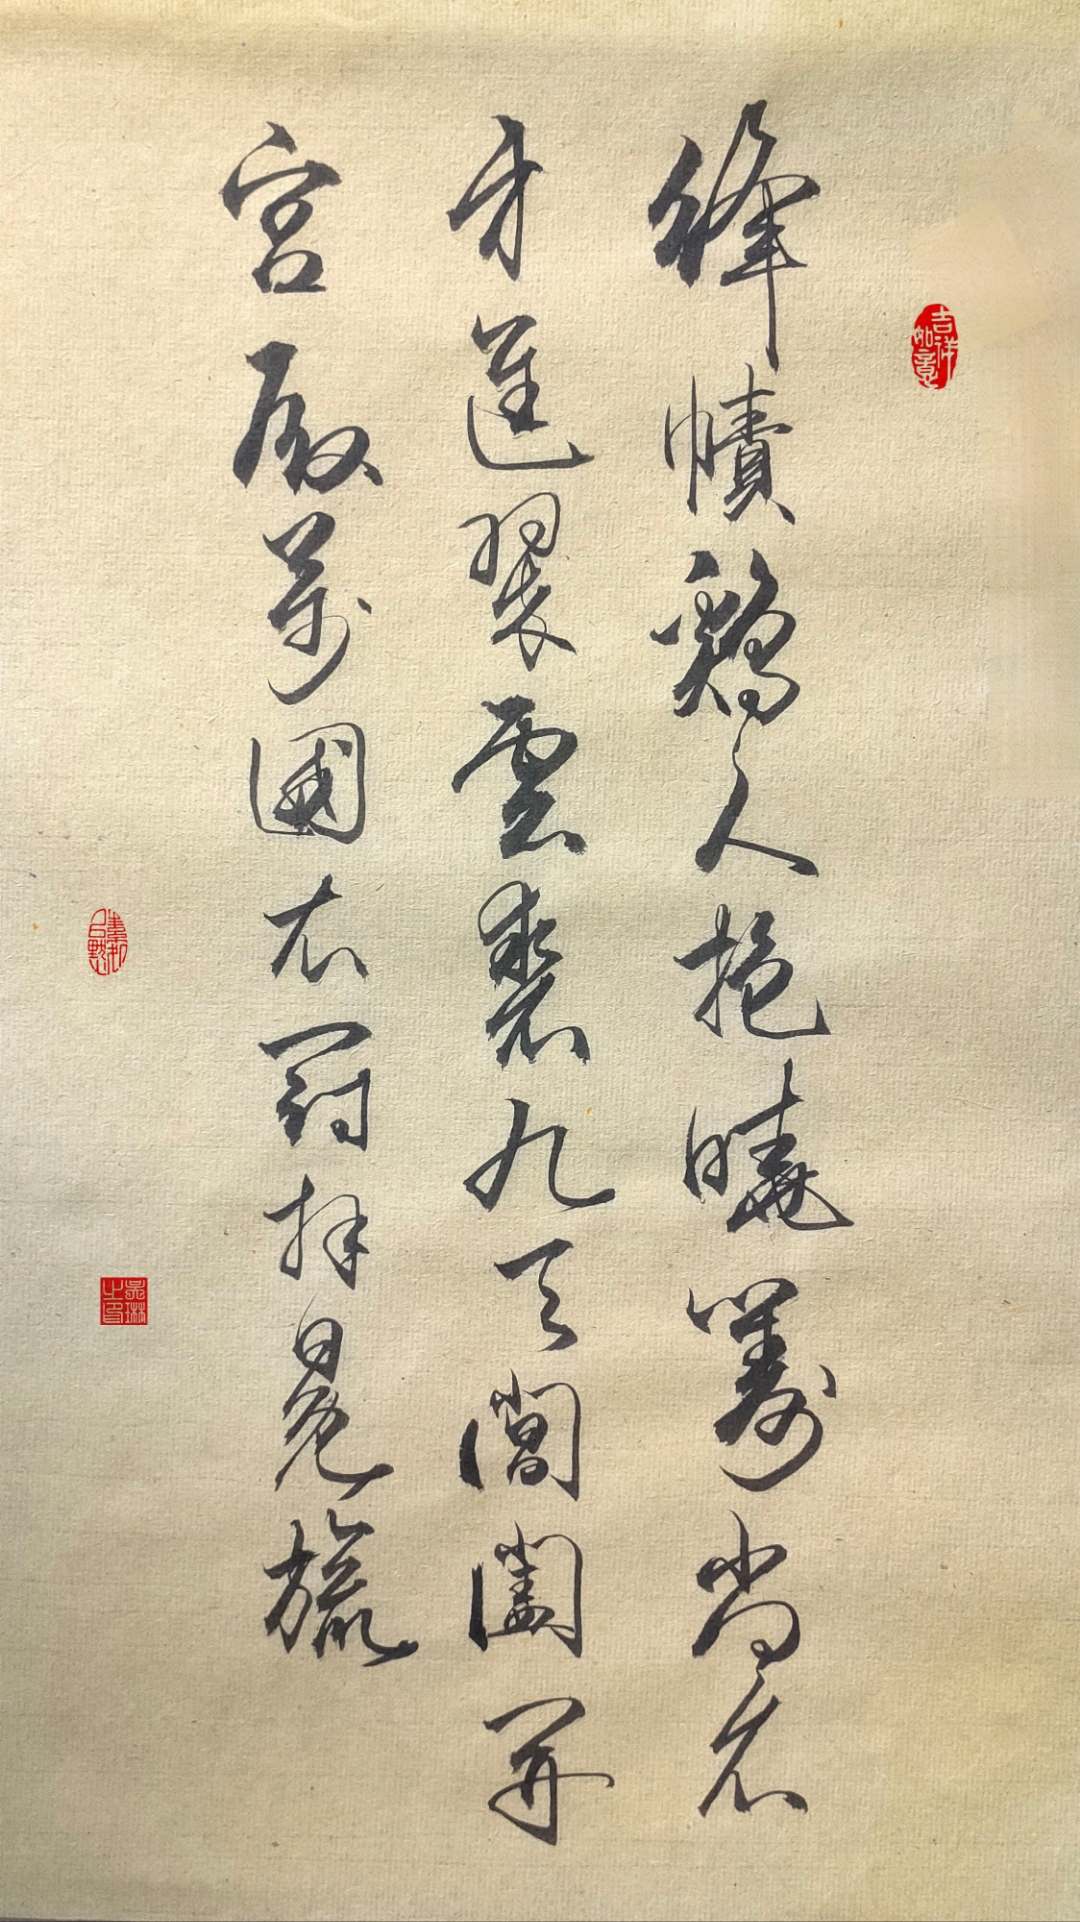 絳幘鷄人抱曉籌尚衣
方進翠雲裘九天閶闔開
宮殿萬國衣冠拜冕旒
吉祥如意